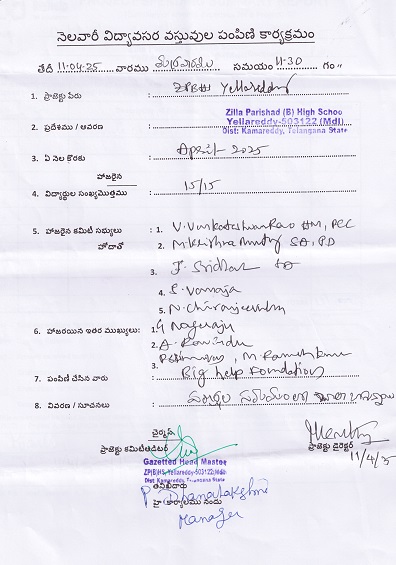 నెలవారీ విద్యావసర వస్తువుల పంపిణి కార్యక్రమం
తేదీ 11-04-25 వారము శుక్రవారము సమయం 11-30 గం॥
1. ప్రాజెక్టు పేరు : ZPBHS Yellareddy
Zilla Parishad (B) High Schoo
2. ప్రదేశము / ఆవరణ : Yellareddy-503122 (Mdl)
Dist: Kamareddy, Telangana State
3. ఏ నెల కొరకు : April 2025
హాజరైన
4. విద్యార్థుల సంఖ్యమొత్తము : 15/15
5. హాజరైన కమిటి సభ్యులు : 1. V. Venkateshwar Rao HM, PCC
హోదాతో 2. M. Krishna Murthy SA, PD
3. F. Sridhar SA
4. S. Vanaja
5. N. Chiranjeevulu
6. హాజరయిన ఇతర ముఖ్యులు: 1. G Nagaraju
2. A. Ravindu
3. M Ramesh Kumar
7. పంపిణి చేసిన వారు : Big help Foundation
8. వివరణ / సూచనలు :
చైర్మన్
ప్రాజెక్టు కమిటి ఆడిటర్ ప్రాజెక్టు డైరెక్టర్
11/4/25
Gazetted Head Master
ZP(B)HS, Yellareddy-503122(Mdl)
Dist: Kamareddy, Telangana State
P Dhanalakshmi
Manager